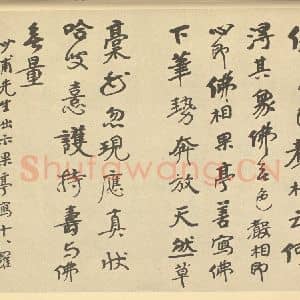 相云何
得其象佛無色聲相即
心即佛相果亭善寫佛
下筆勢奔放天然一草
藁忽現應真狀
護持壽与佛
無量
少甫先生出示果亭寫十八羅
Shufawang.CN